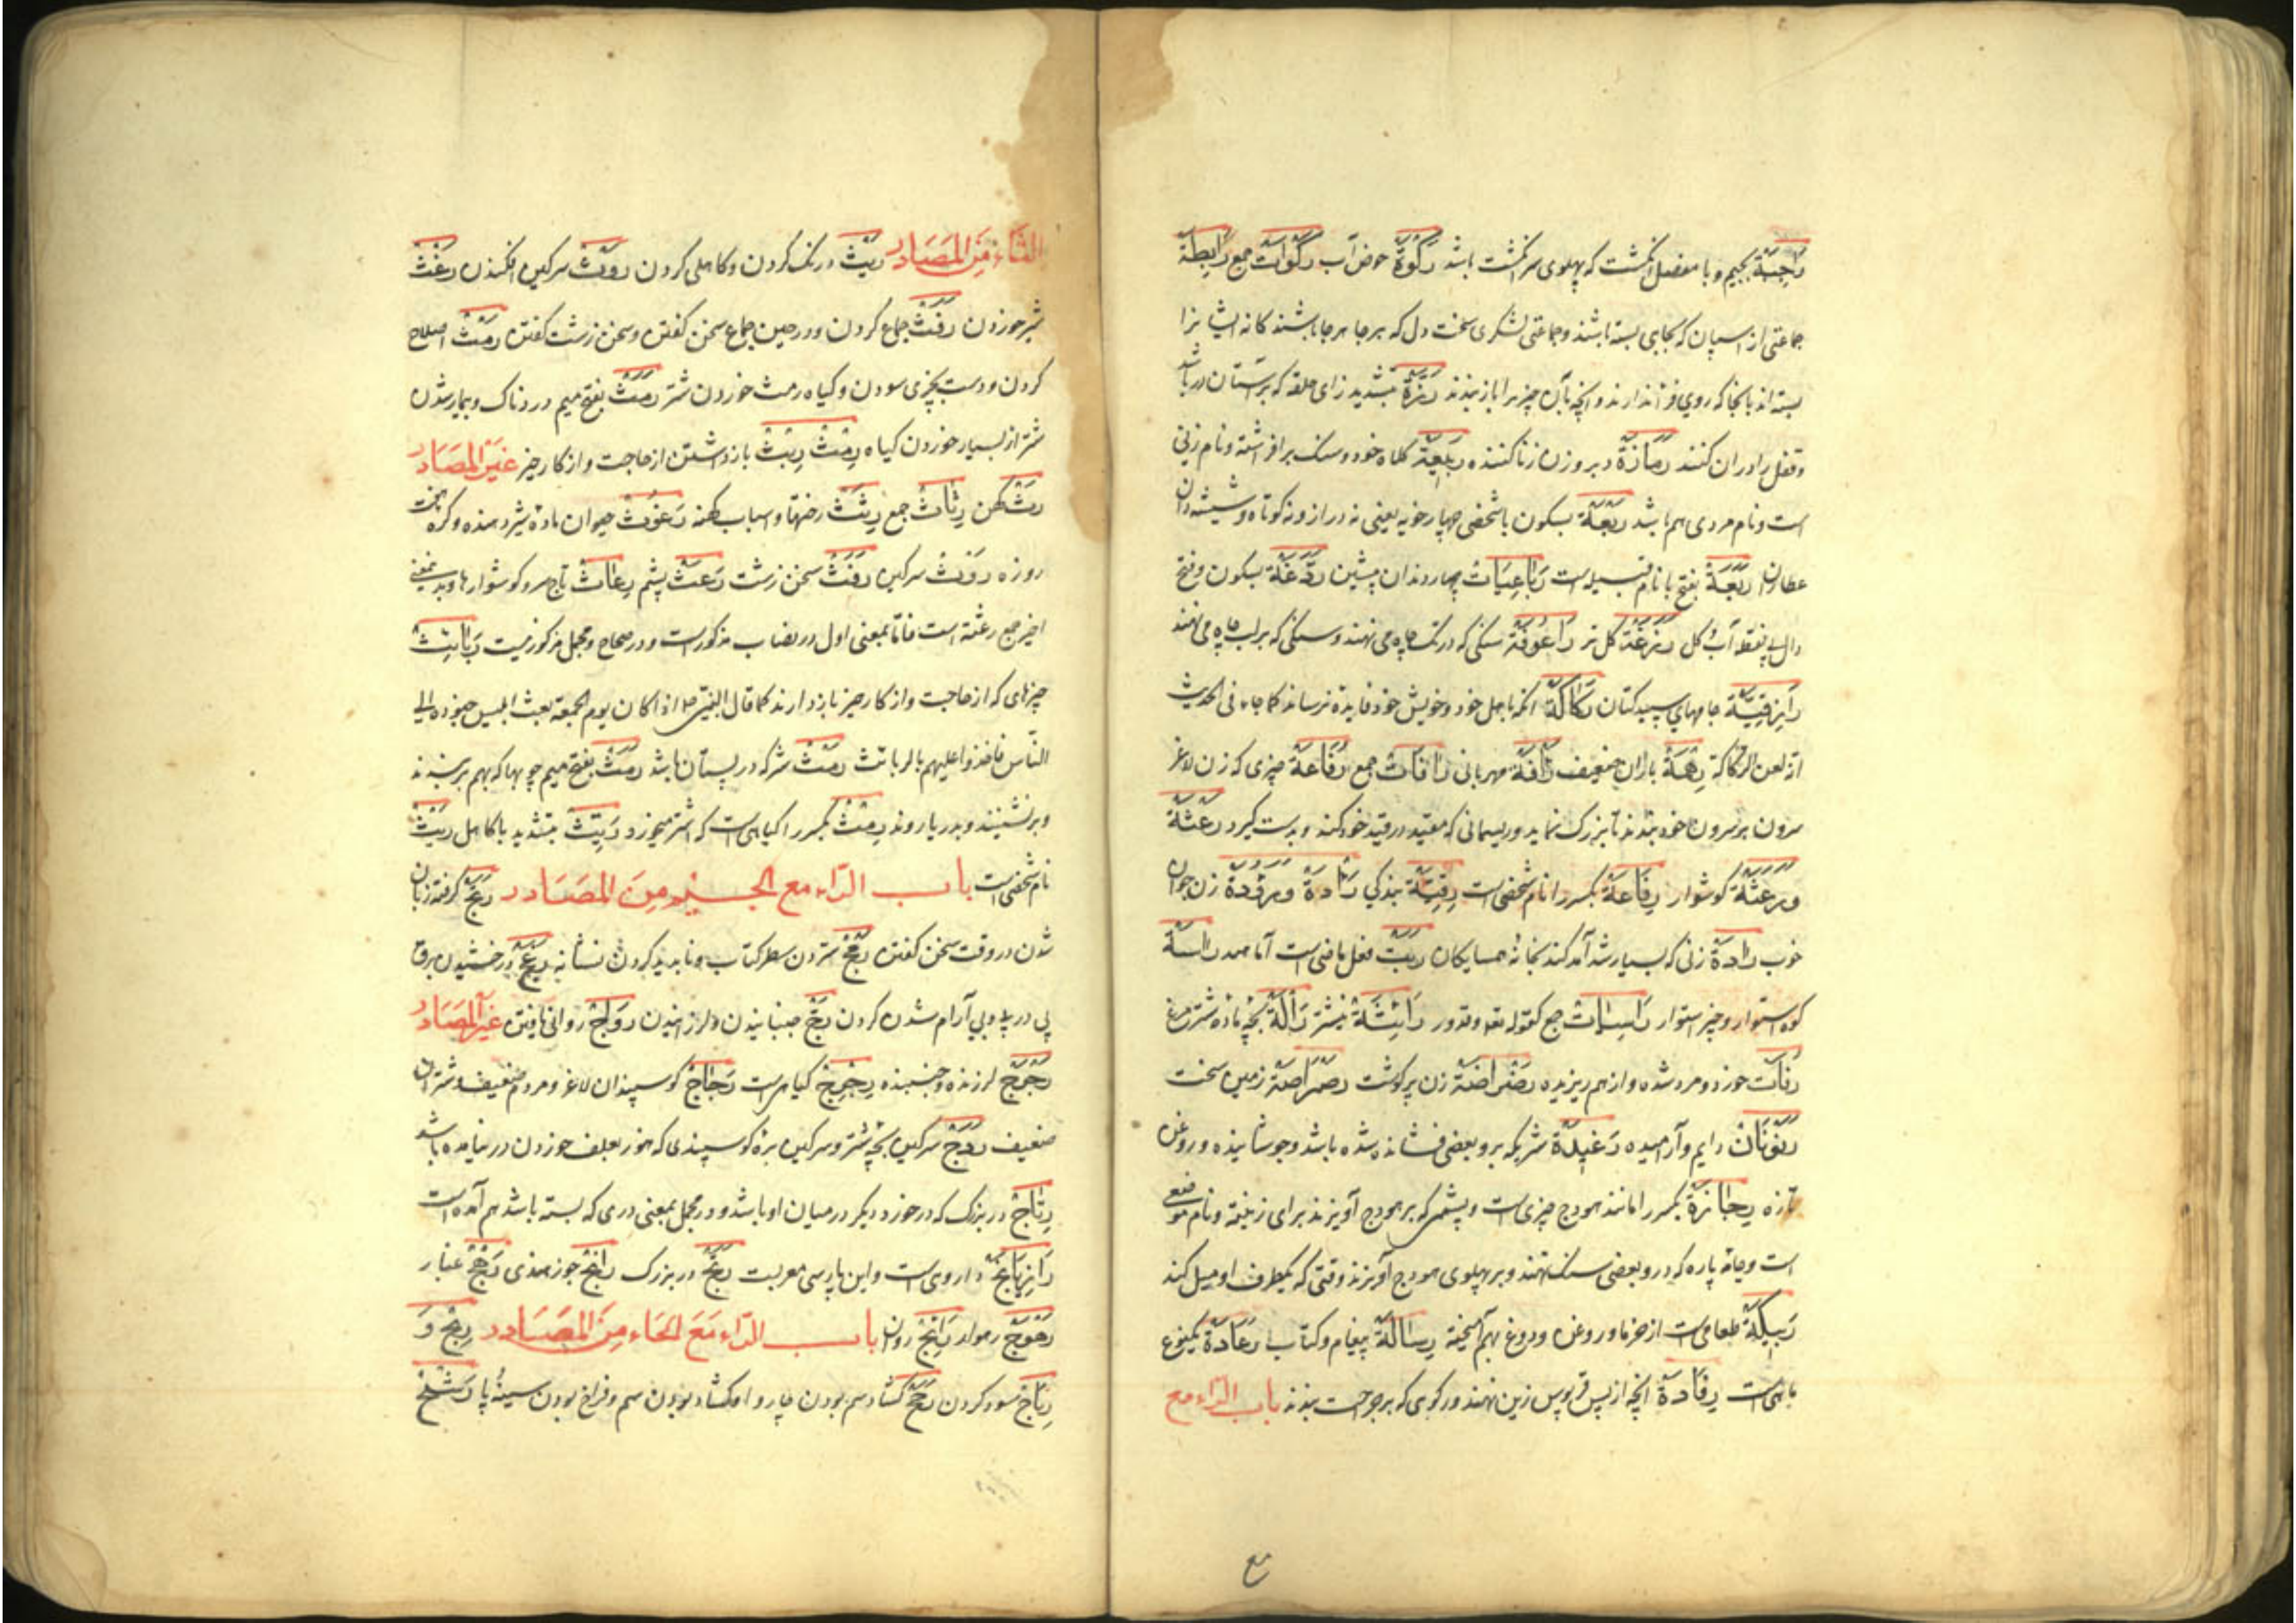 راجبة بجیم و با مفصل انگشت که پهلوی سر انگشت باشد رکوة حوض آب رکوات جمع رابطة
جماعتی از اسپان که بجایی بسته باشند و جماعتی لشکری سخت دل که هر جا هر جا باشند کانه ایشانرا
بسته اند بانجا که روی فرا ندارند و آنچه بآن چیزیرا باز بندند رزة بتشدید زای حلقه که برستان در باشد
و قفل را در آن کنند رمازة دبر و زن زنا کننده ربیعة کلاه خود و سنک برافراشته و نام زنی
است و نام مردی هم باشد ربعة بسکون با شخصی چهار خو یعنی نه دراز و نه کوتاه و شیشه دان
عطاران ربعة بفتح با نام قبیله است رباعیات چهار دندان پیشین ردغة بسکون و فتح
دال بی نقطه آب و کل رزغة کل تر راعوفة سنکی که در تک چاه می نهند و سنکی که بر لب چاه می نهند
رازقیة جامهای سپید کتان رکاکة آنکه باهل خود و خویش خود فایده نرساند کما جاء فی الحدیث
انه لعن الرکاکة رهمة باران ضعیف رأفة مهربانی رافات جمع رفاعة چیزی که زن لاغر
سرون بر سرون خود بندد تا بزرک نماید و ریسمانی که مقید در قید خود کند و بدست کیرد رعثة
و رعثة کوشوار رفاعة بکسر را نام شخصی است رقیة بندکی رأدة و رؤدة زن جوان
خوب رادة زنی که بسیار شد آمد کند بخانه همسایکان ربت فعل ماضی است آماهید راسیة
کوه استوار و چیز استوار راسیات جمع کقوله تعالی و قدور رائشة نیشتر رألة بچه ماده شترمرغ
رفات خورد و مرد شده و از هم ریزیده رضراضة زن پر کوشت رصراصة زمین سخت
رنونات دایم و آرامیده رغیدة شیر که برو بعضی فشانده شده باشد و جوشانیده و روغن
تازه رجازة بکسر را مانند هودج چیزی است و پشمی که بر هودج آویزند برای زینت و نام موضعی
است و جامه پاره که درو بعضی سنک نهند و بر پهلوی هودج آویزند وقتی که یکطرف او میل کند
ربیکة طعامی است از خرما و روغن و دوغ بهم آمیخته رسالة پیغام و کتاب رعادة یکنوع
ماهی است رفادة آنچه از پس قربوس زین نهند و رکوی که بر جراحت بندند باب الراء مع
مع
الثاء من المصادر ریث درنک کردن و کاهلی کردن روث سرکین افکندن رغث
شیر خوردن رفث جماع کردن و در حین جماع سخن کفتن و سخن زشت کفتن رمث اصلاح
کردن و دست بچیزی سودن و کیاه رمث خوردن شتر رمث بفتح میم دردناک و بیمار شدن
شتر از بسیار خوردن کیاه رمث ربث باز داشتن از حاجت و از کار خیر غیر المصادر
رث کهن رثاث جمع رثث رختها و اسباب کهنه رغوث حیوان ماده شیر دهنده و کره
روزه روث سرکین رفث سخن زشت رعث پشم رعاث تاج سر و کوشوارها و بدین معنی
اخیر جمع رعثه است فاما بمعنی اول در نصاب مذکور است و در صحاح و مجمل مذکور نیست ربائث
چیزهای که از حاجت و از کار خیر باز دارند کما قال النبی اذا کان یوم الجمعة بعث ابلیس جنوده الی
الناس فاخذوا علیهم بالربائث رمث شیر که در پستان باشد رمث بفتح میم چوبها که بهم بر بندند
و بر نشینند و بدریا روند رمث بکسر را کیاهی است که اشتر میخورد ریث بتشدید یا کاهل ریث
نام شخصی است باب الراء مع الجیم من المصادر رتج کرفته زبان
شدن در وقت سخن کفتن رتج ستردن سطر کتاب و ناپدید کردن نشانه رعج درخشیدن برق
پی در پی و بی آرام شدن کردن رج جنبانیدن و لرزانیدن رواج روانی یافتن غیر المصادر
رجرج لرزنده و جنبنده رجرج کیاهی است رجاج کوسپندان لاغر و مردم ضعیف و شتران
ضعیف ردج سرکین بچه شتر و سرکین بزه کوسپندی که هنوز بعلف خوردن در نیامده باشد
رتاج در بزرک که در خورد دیکر در میان او باشد و در مجمل بمعنی دری که بسته باشد هم آمده است
رازیانج داروی است و این پارسی معربست رتج در بزرک رانج جوز هندی رهج غبار
رهوج رهوار رائج روان باب الراء مع الحاء من المصادر ربح و
رباح سود کردن رحح کشاد سم بودن چاروا و کشاد بودن سم و فراخ بودن سینه پا رشح